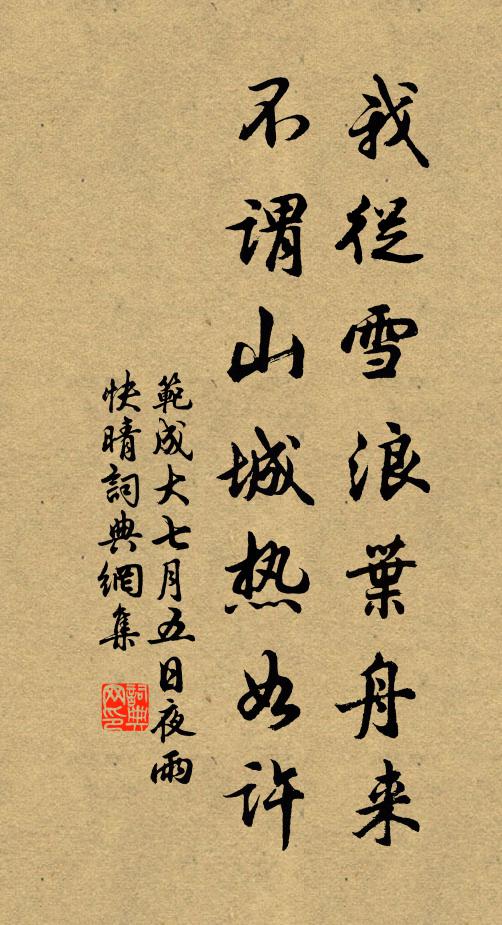 我從雪浪葉舟来
不謂山城热如许
範成大七月五日夜雨
快晴詞典網集
詞典网印